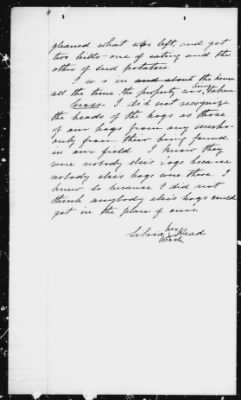 gleaned what was left, and got
two hills - one of eating and the
other of seed potatoes.
I w s in and about the house
all the time the property was being taken
I did not recognize
the heads of the hogs as those
of our hogs from any
only from their being found
in our field. I know they
were nobody else's hogs because
nobody else's hogs were there. I
knew so because I did not
think anybody else's hogs could
get in the place of ours.
her
Silvia x Head
mark